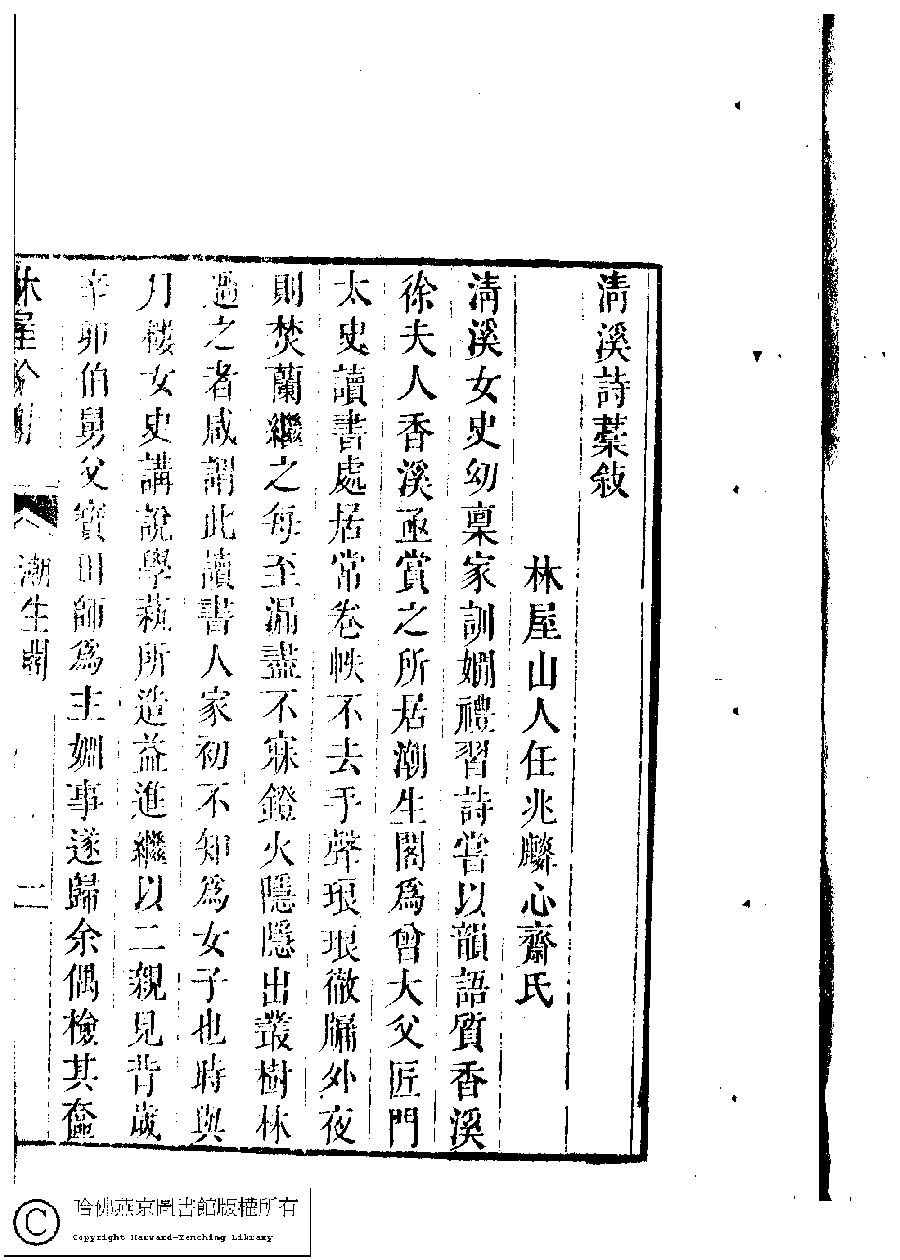 清溪詩藳敍
林屋山人任兆麟心齋氏
清溪女史幼稟家訓嫺禮習詩嘗以韻語質香溪
徐夫人香溪亟賞之所居潮生閣爲曾大父匠門
太史讀書處居常卷帙不去手聲琅琅徹牖外夜
則焚蘭繼之每至漏盡不寐鐙火隱隱出叢樹林
過之者咸謂此讀書人家初不知爲女子也時與
月樓女史講說學蓺所造益進繼以二親見背歲
辛卯伯舅父寶田師爲主婣事遂歸余偶檢其奩
林屋吟榭
潮生閣
二
哈佛燕京圖書館版權所有
Copyright Harvard-Yenching Library